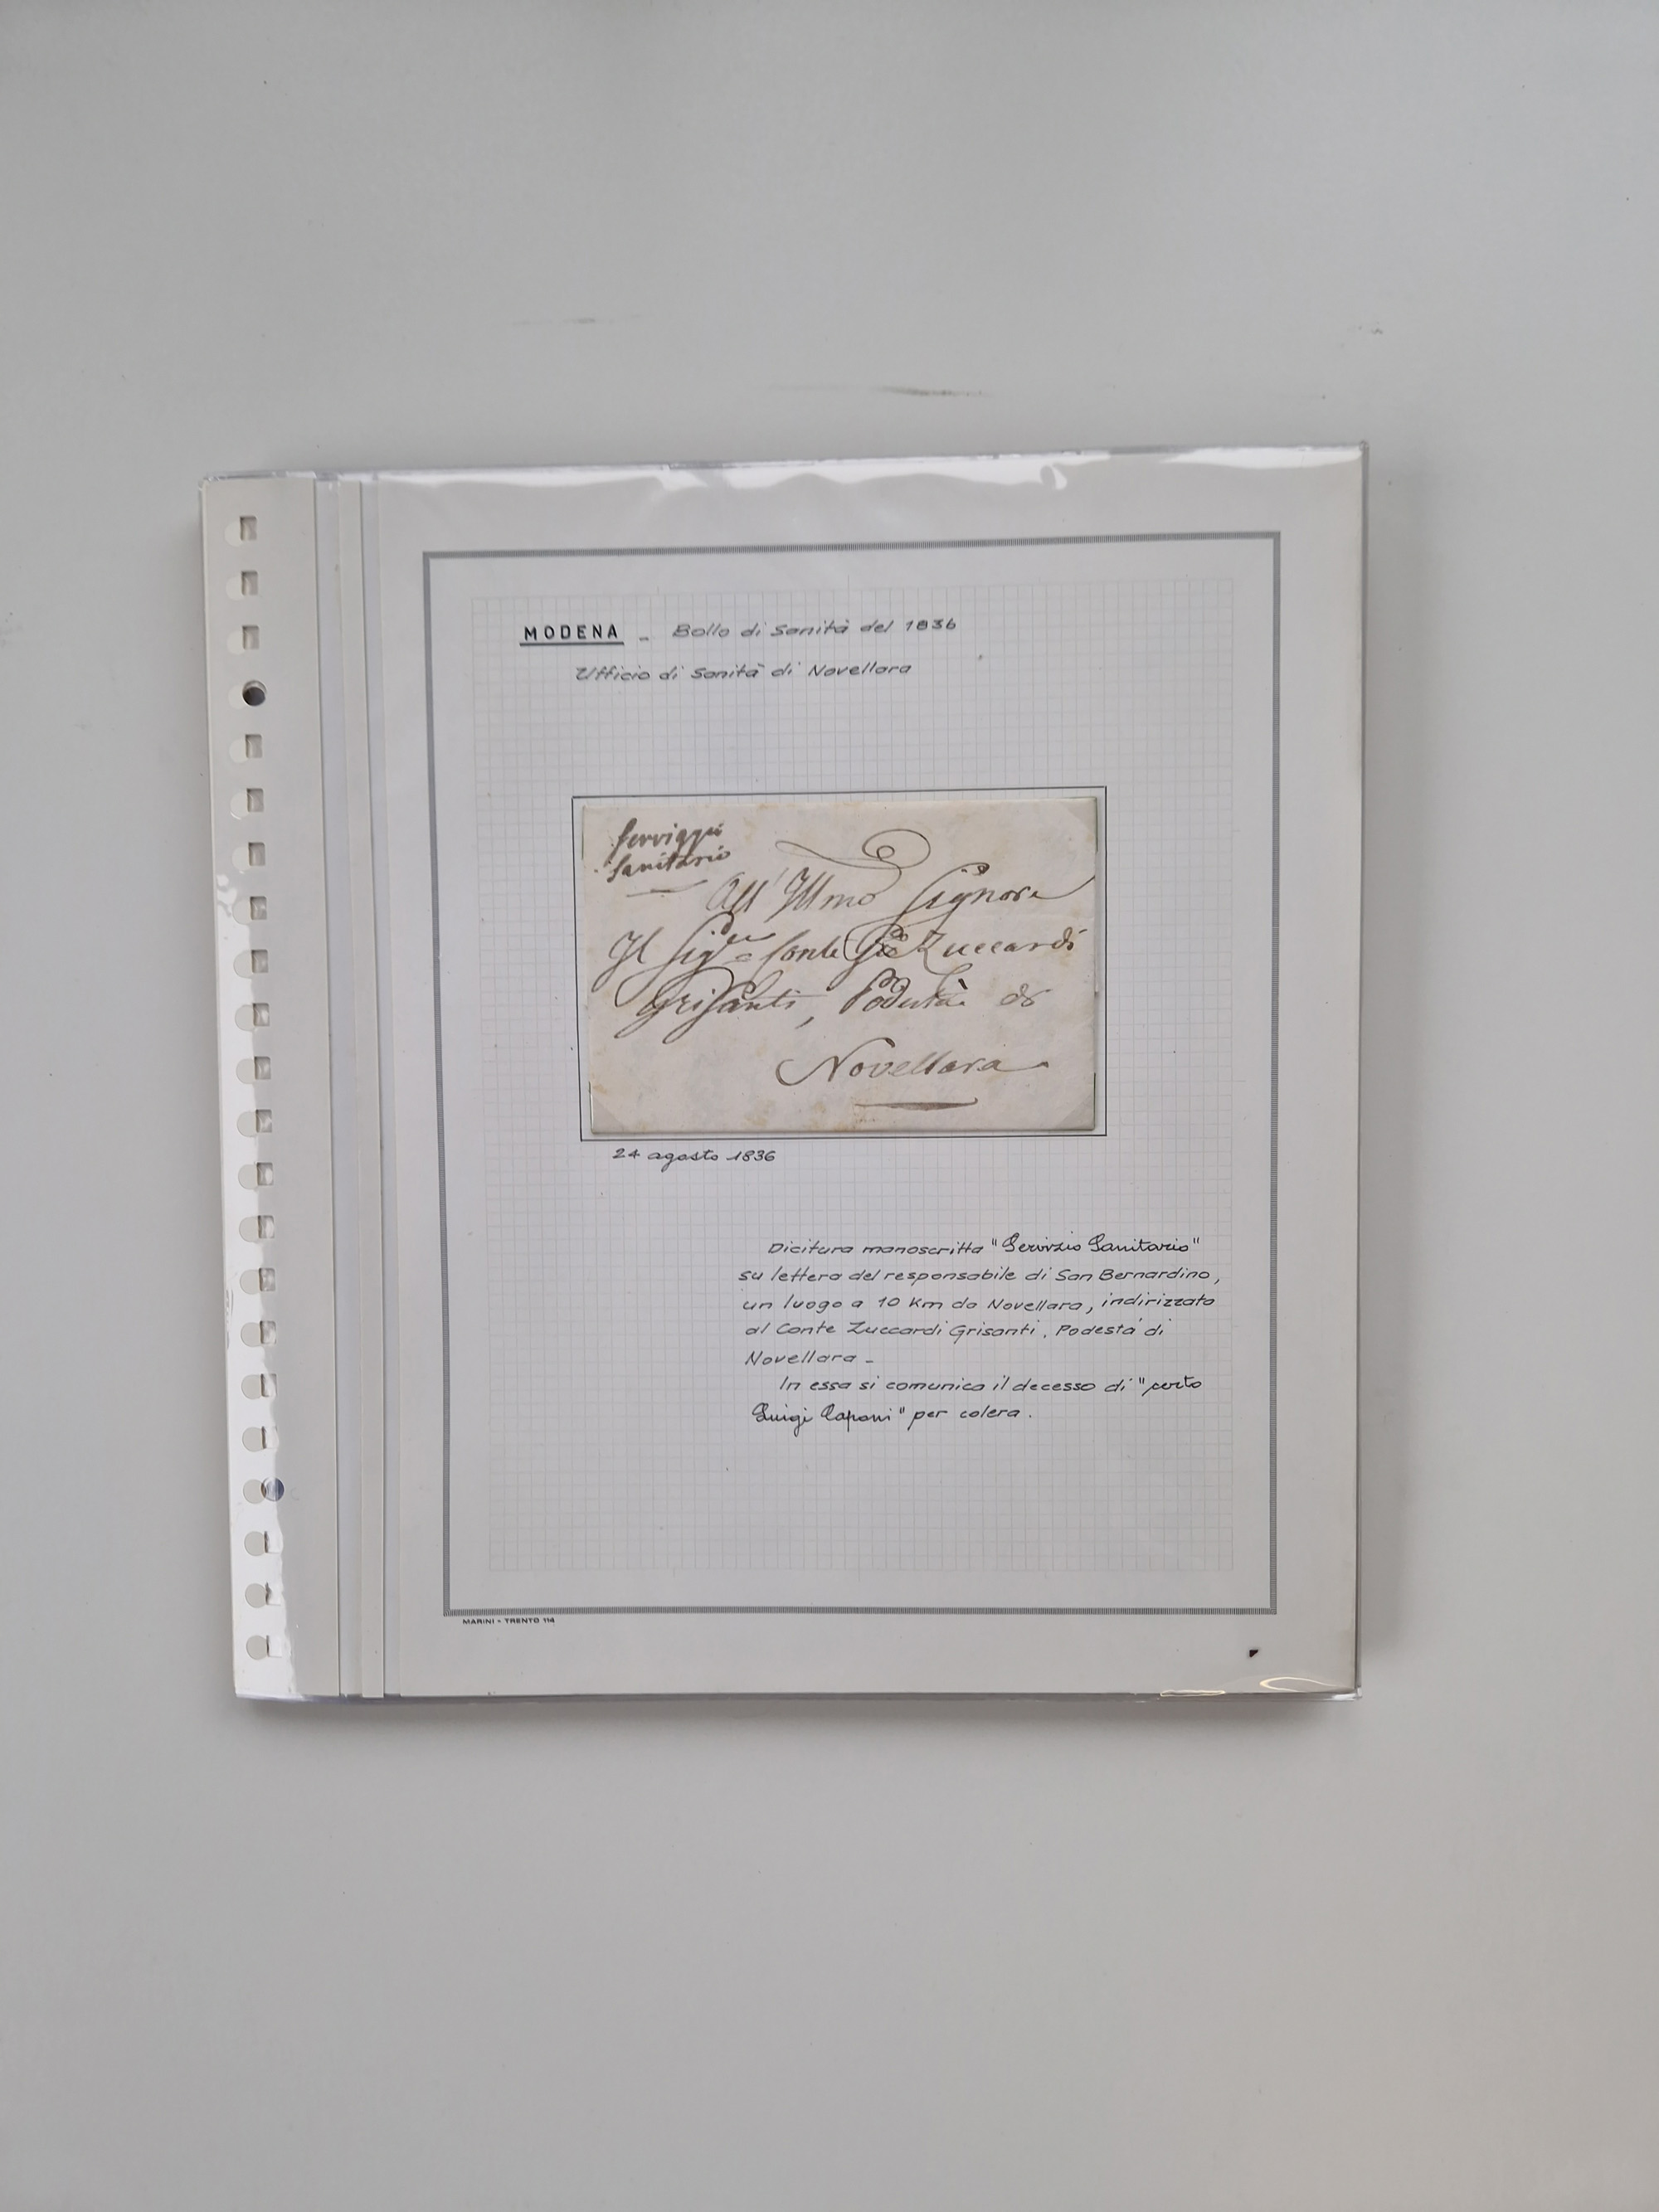 MODENA - Bollo di Sanità del 1836
Ufficio di Sanità di Novellara
Servizio
Sanitario
All' Illmo Signore
Il Sigre Conte Zuccardi
Grisanti, Podestà di
Novellara
24 agosto 1836
Dicitura manoscritta "Servizio Sanitario"
su lettera del responsabile di San Bernardino,
un luogo a 10 Km da Novellara, indirizzata
al Conte Zuccardi Grisanti, Podestà di
Novellara -
In essa si comunica il decesso di "certo
Luigi Caponi" per colera.
MARINI - TRENTO 114